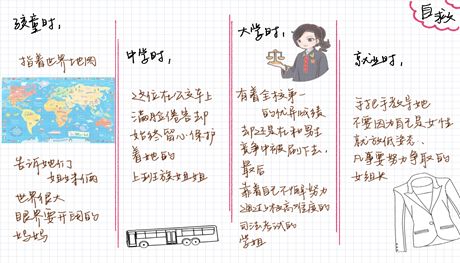 自救
孩童时,
指着世界地图
告诉她们
姐妹俩
世界很大
眼界要开阔的
妈妈
中学时,
这位在公交车上
满脸倦害却
始终留心保护
着她的
上班族姐姐
大学时,
有着全校第一
的优异成绩
却还是在和男生
竞争中被刷下去,
最后
靠着自己不懈努力
通过极高难度的
司法考试的
学姐
就业时,
手把手教导她
不要因为自己是女性
就放低姿态,
凡事要努力争取的
女组长